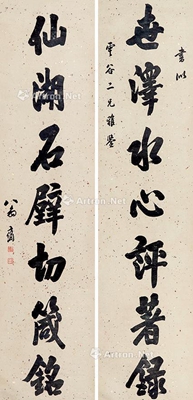 書似
世澤水心評著錄
雲谷二兄雅鑒
仙湖石壁切箴銘
Artron.Net
Artron.Net